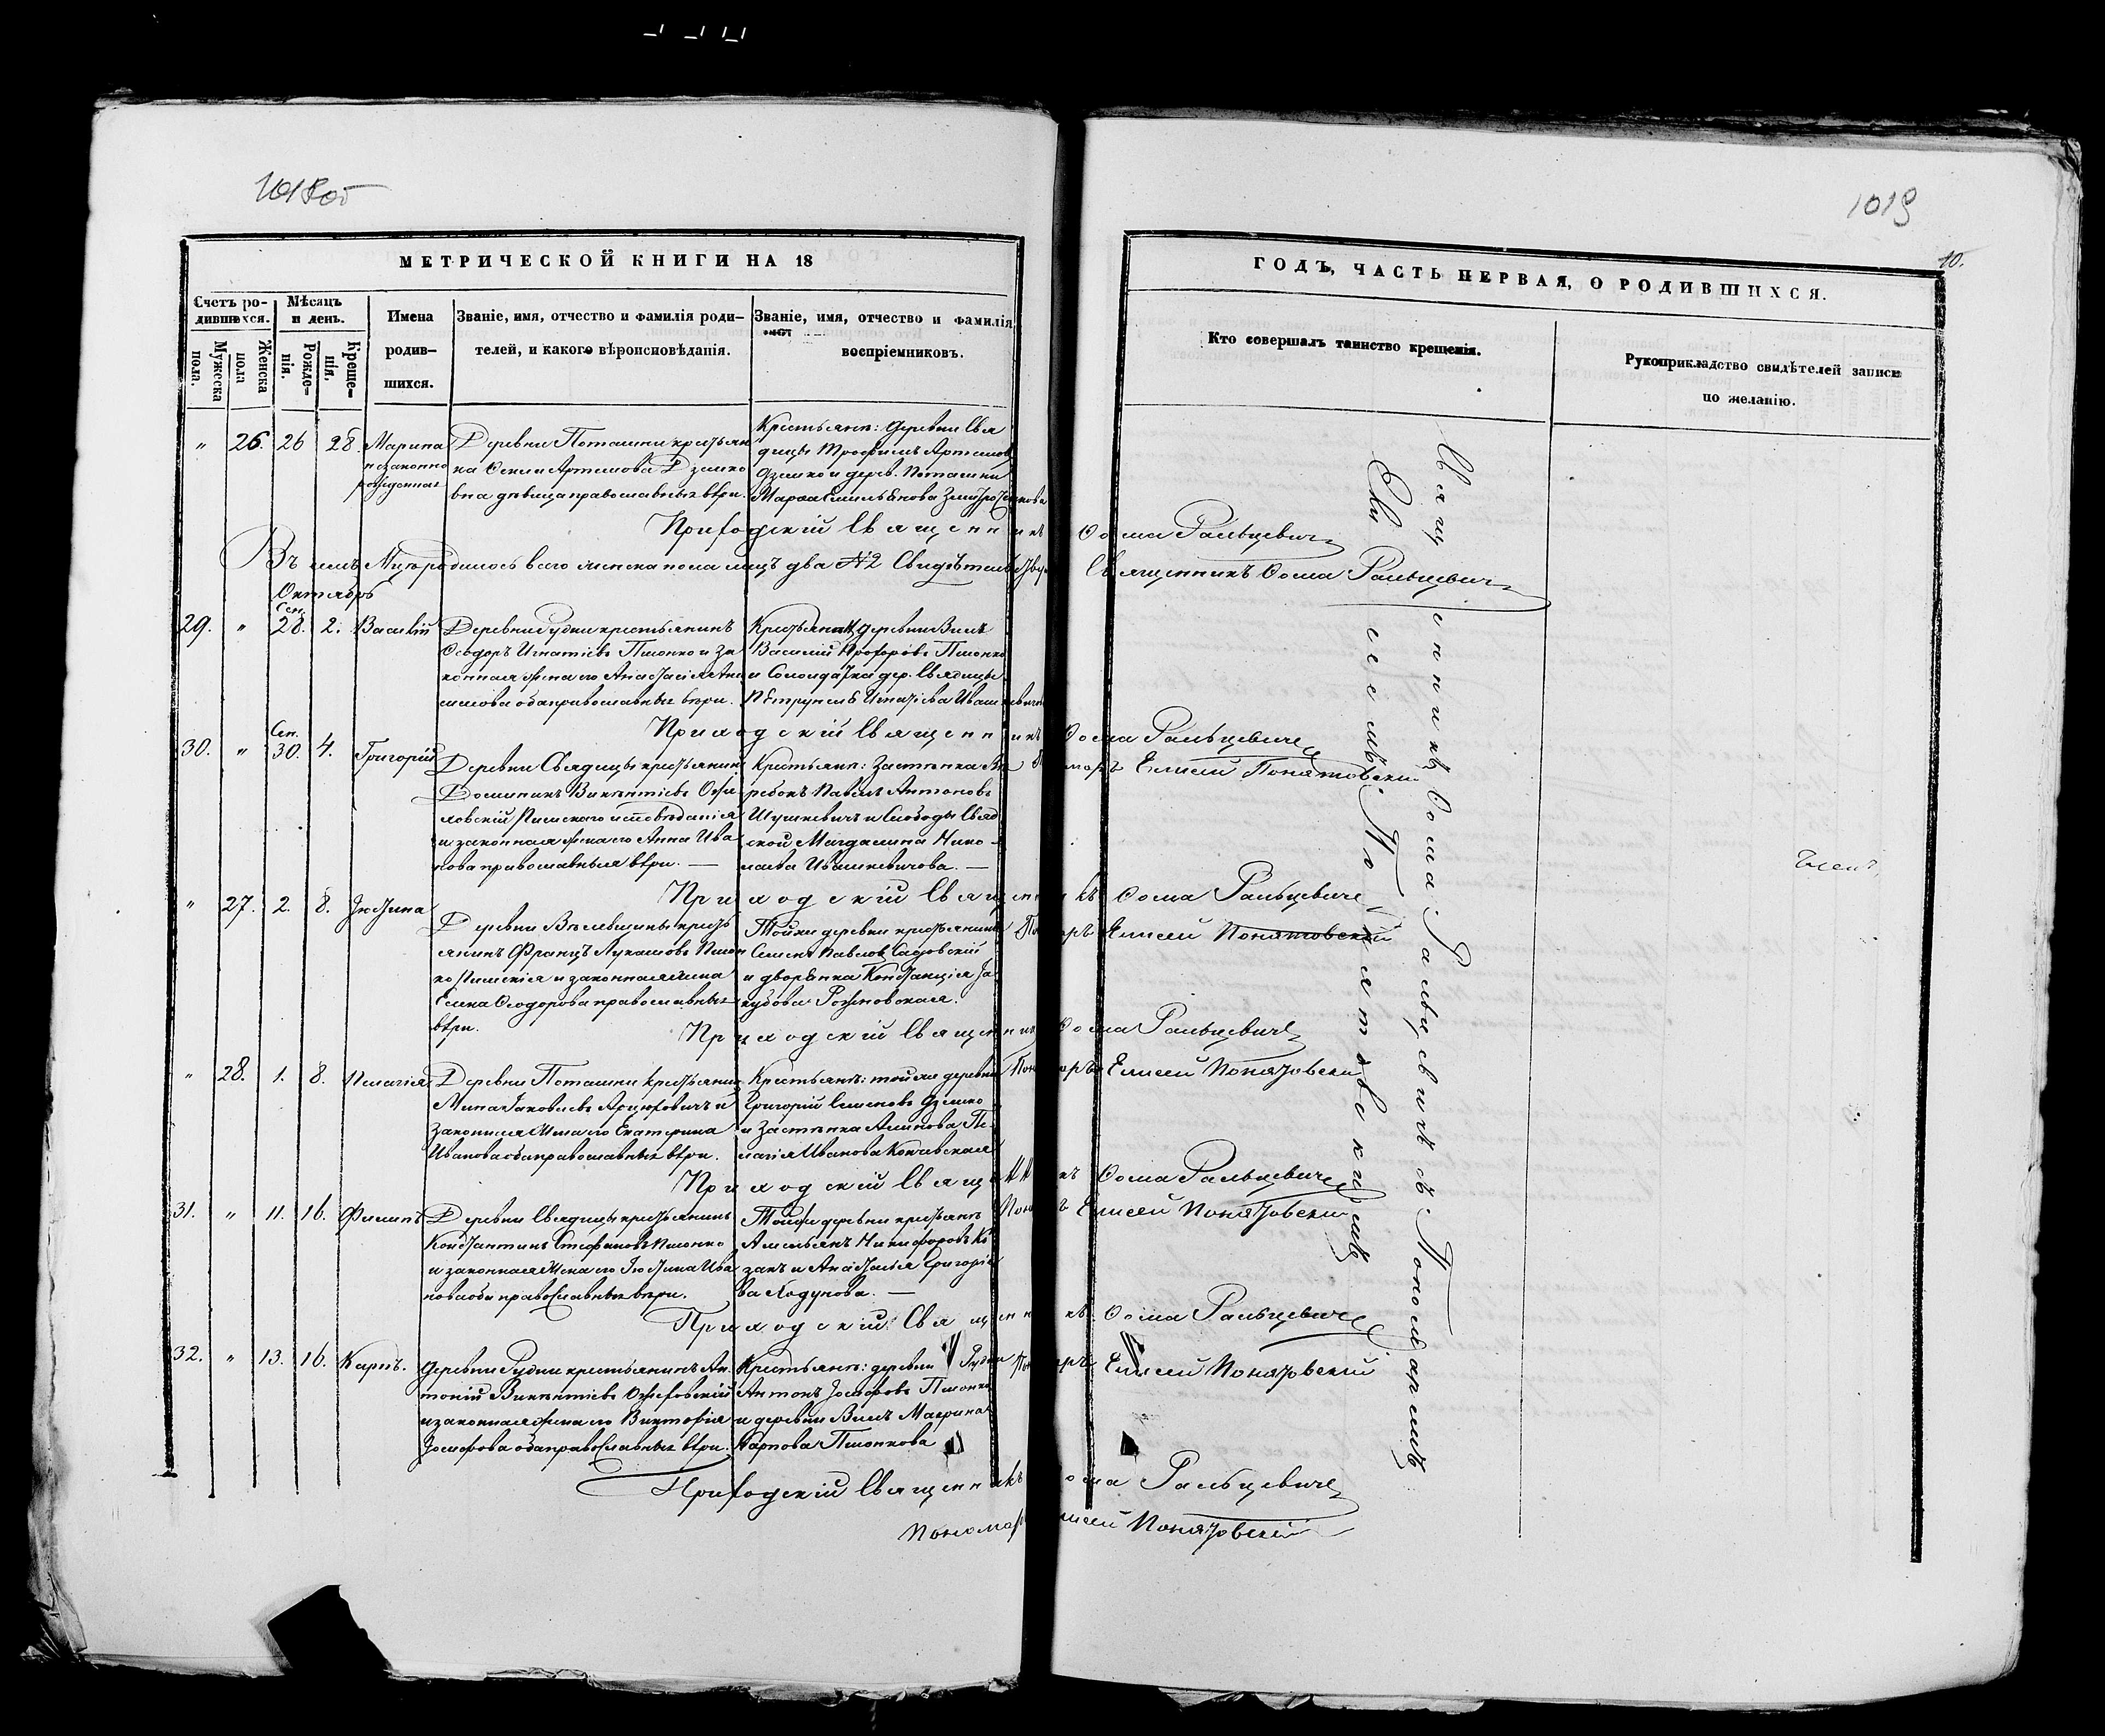 1018об
1019
10.
МЕТРИЧЕСКОЙ КНИГИ НА 18
ГОДЪ, ЧАСТЬ ПЕРВАЯ, О РОДИВШИХСЯ.
Счетъ ро-
дившихся.
Мужеска
пола.
Женска
пола
Мѣсяцъ
и день.
Рожде-
нія.
Креще-
нія.
Имена
родив-
шихся.
Званіе, имя, отчество и фамилія роди-
телей, и какого вѣроисповѣданія.
Званіе, имя, отчество и фамилія
воспріемниковъ.
Кто совершалъ таинство крещенія.
Рукоприкладство свидѣтелей записи
по желанію.
„ 26. 26 28. Марина
незаконно
рожденная
Деревни Поташни крестьян
ка Артемова Дзешко
вна дѣвица православныя вѣры.
Крестьяне: деревни Свя
дицы Трофимъ Артемовъ
Дзешко и дерев. Поташни
Марѳа Емельянова
Приходскій Священникъ Ѳома Ральцевичъ
Въ семъ Мцѣ родилось всего женска пола лицъ два №2 Свидѣтельствуемъ Священникъ Ѳома Ральцевичъ
Октябрь
29. „ Сен. 28. 2. Василій
Деревни Рудни крестьянинъ
Ѳеодоръ Игнатіевъ Пшонко и за
конная жена его Анастасія
оба православныя вѣры.
Крестьянинъ деревни Вилы
Василій Пшонко
и Солдатка дер. Свядицы
Игнатіева
Приходскій Священникъ Ѳома Ральцевичъ
Пономарь Елисей Понятовскій
30. „ Сен. 30. 4. Григорій
Деревни Свядицы крестьянинъ
Доминикъ Викентіевъ
Римскаго исповѣданія
и законная жена его Анна Ива
нова православныя вѣры. —
Крестьяне: Застѣнка
Павелъ Антоновъ
Шушкевичъ и Слободы Свяд
ской Магдалина Нико
лаева Ивашкевичова. —
Приходскій Священникъ Ѳома Ральцевичъ
Пономарь Елисей Понятовскій
„ 27. 2. 8. Іюстина
Деревни крестъ
янинъ Францъ Лукашовъ Пшон
ко Римскія и законная жена
Елена Ѳеодорова православныя
вѣры.
Тойжи деревни крестьянинъ
Семенъ Павловъ Садовскій
и дворянка Констанція Я
кубова
Приходскій Священникъ Ѳома Ральцевичъ
Пономарь Елисей Понятовскій
„ 28. 1. 8. Пелагія
Деревни Поташни крестьянинъ
Мина Яковлевъ и
законная жена его Екатерина
Иванова оба православныя вѣры.
Крестьяне: тойже деревни
Григорій Семеновъ Дзешко
и Застѣнка Пе
лагія Иванова
Приходскій Священникъ Ѳома Ральцевичъ
Пономарь Елисей Понятовскій
31. „ 11. 16. Филипъ
Деревни Свядицы крестьянинъ
Константинъ Стефановъ Пшонко
и законная жена его Іюстина Ива
нова оба православныя вѣры.
Тойже деревни крестьяне
Амельянъ Никифоровъ Ко
закъ и Анастасія Григорье
ва Ходунова. —
Приходскій Священникъ Ѳома Ральцевичъ
Пономарь Елисей Понятовскій
32. „ 13. 16. Карпъ.
Деревни Рудни крестьянинъ Ан
тоній Викентіевъ
и законная жена его Викторія
Іосифова оба православныя вѣры.
Крестьяне: деревни Рудни
Антонъ Іосифовъ Пшонко
и деревни Вилы Макрина
Карпова Пшонкова
Приходскій Священникъ Ѳома Ральцевичъ
Пономарь Елисей Понятовскій
Священникъ Ѳома Ральцевичъ съ Пономаремъ
Елисеемъ Понятовскимъ